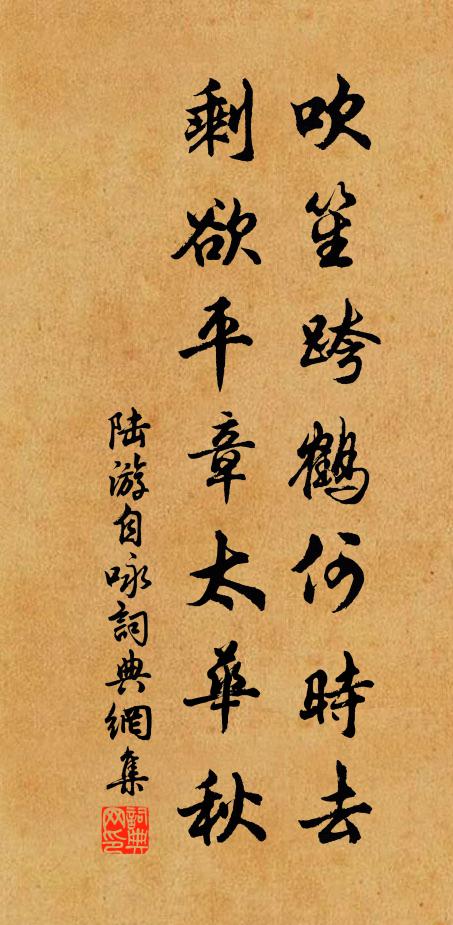 吹笙跨鶴何時去
剩欲平章太華秋
陆游自咏詞典網集
詞典網印